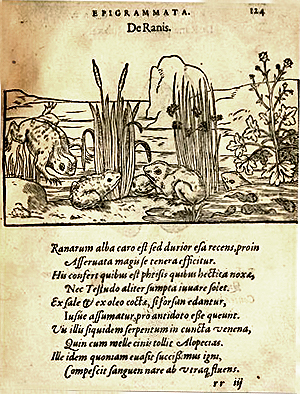 EPIGRAMMATA. 124
De Ranis.
Ranarum alba caro est sed durior esa recens, proin
Asseruata magis se tenera efficitur.
His confert quibus est phtisis quibus hectica noxa,
Nec Testudo aliter sumpta iuuare solet.
Ex sale & ex oleo cocta, si forsan edantur,
Iusue assumatur, pro antidoto esse queunt.
Vt illis siquidem serpentum in cuncta venena,
Quin cum melle cinis tollit Alopecias.
Ille idem quoniam euasit succissimus igni,
Compescit sanguen nare ab vtraq, fluens.
rr iij